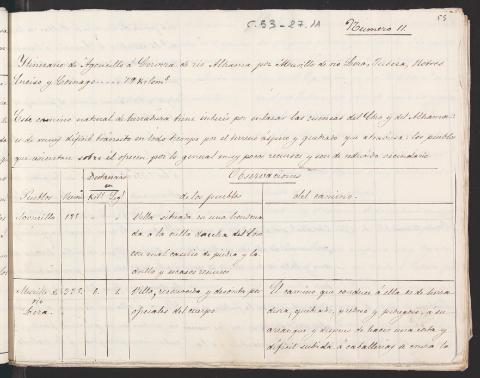 C.53-27.1A
Numero 11.
Itinerario de Agoncillo á Cervera de rio Alhama por Murillo de rio Leza, Jubera, Robres
Enciso y Cornago 78 kilom.
Este camino natural de herradura tiene interés por enlazar las cuencas del Ebro y del Alhama
es de muy dificil tránsito en todo tiempo por el terreno áspero y quebrado que atraviesa: los pueblos
que asientan sobre él ofrecen por lo general muy pocos recursos y son de reducido vecindario
Distancias Observaciones
en
Pueblos Kil. Leg. de los pueblos del camino.
Villa situada en una hondona-
da á la orilla derecha del Ebro
con mal caserio de piedra y la-
drillo y escasos recursos
Murillo de Villa, reconocida y descrita por El camino que conduce á ella es de herra-
rio oficiales del cuerpo dura, quebrado, pedreso y pedregoso, á su
Leza. arranque y despues de hacer una corta y
dificil subida á caballerias se cruza la